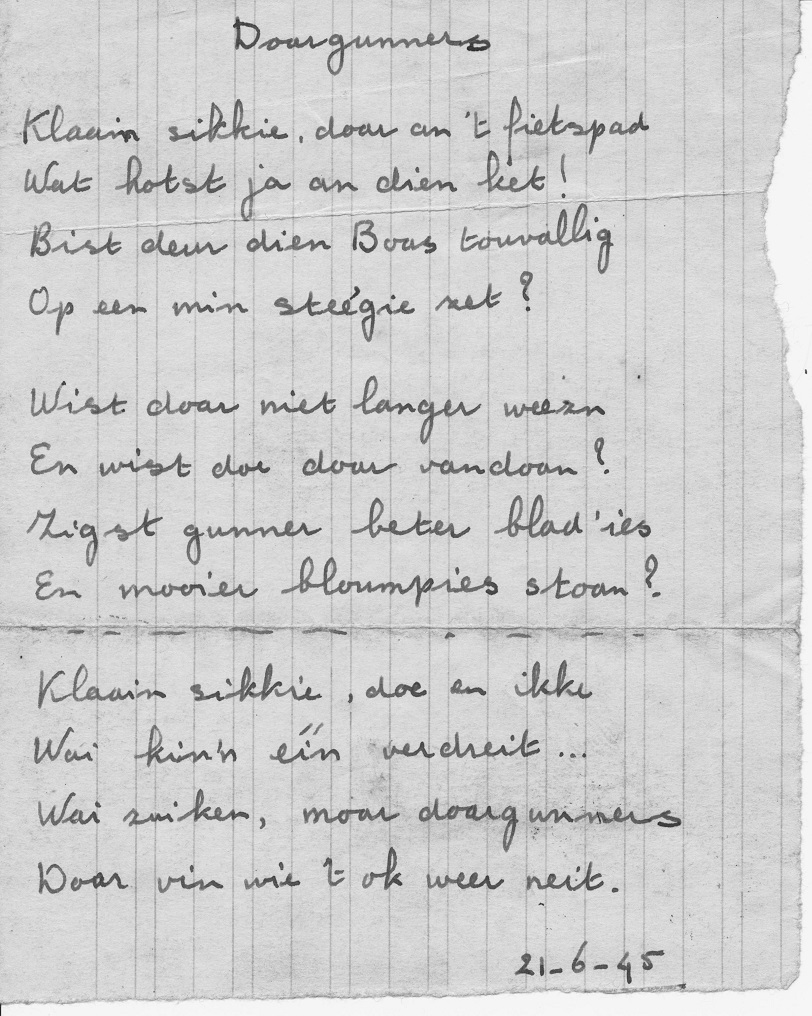 Doargunners
Klaain sikkie, doar an 't fietspad
Wat hotst ja an dien ket!
Bist deur dien Boas touvallig
Op een min steégie zet?
Wist doar niet langer weezn
En wist doe doar vandoan?
Zigst gunner beter blad'ies
En mooier bloumpies stoan?
Klaain sikkie, doe en ikke
Wai kin'n eín verdreit ...
Wai zuiken, moar doargunners
Doar vin wie 't ok weer neit.
21-6-45